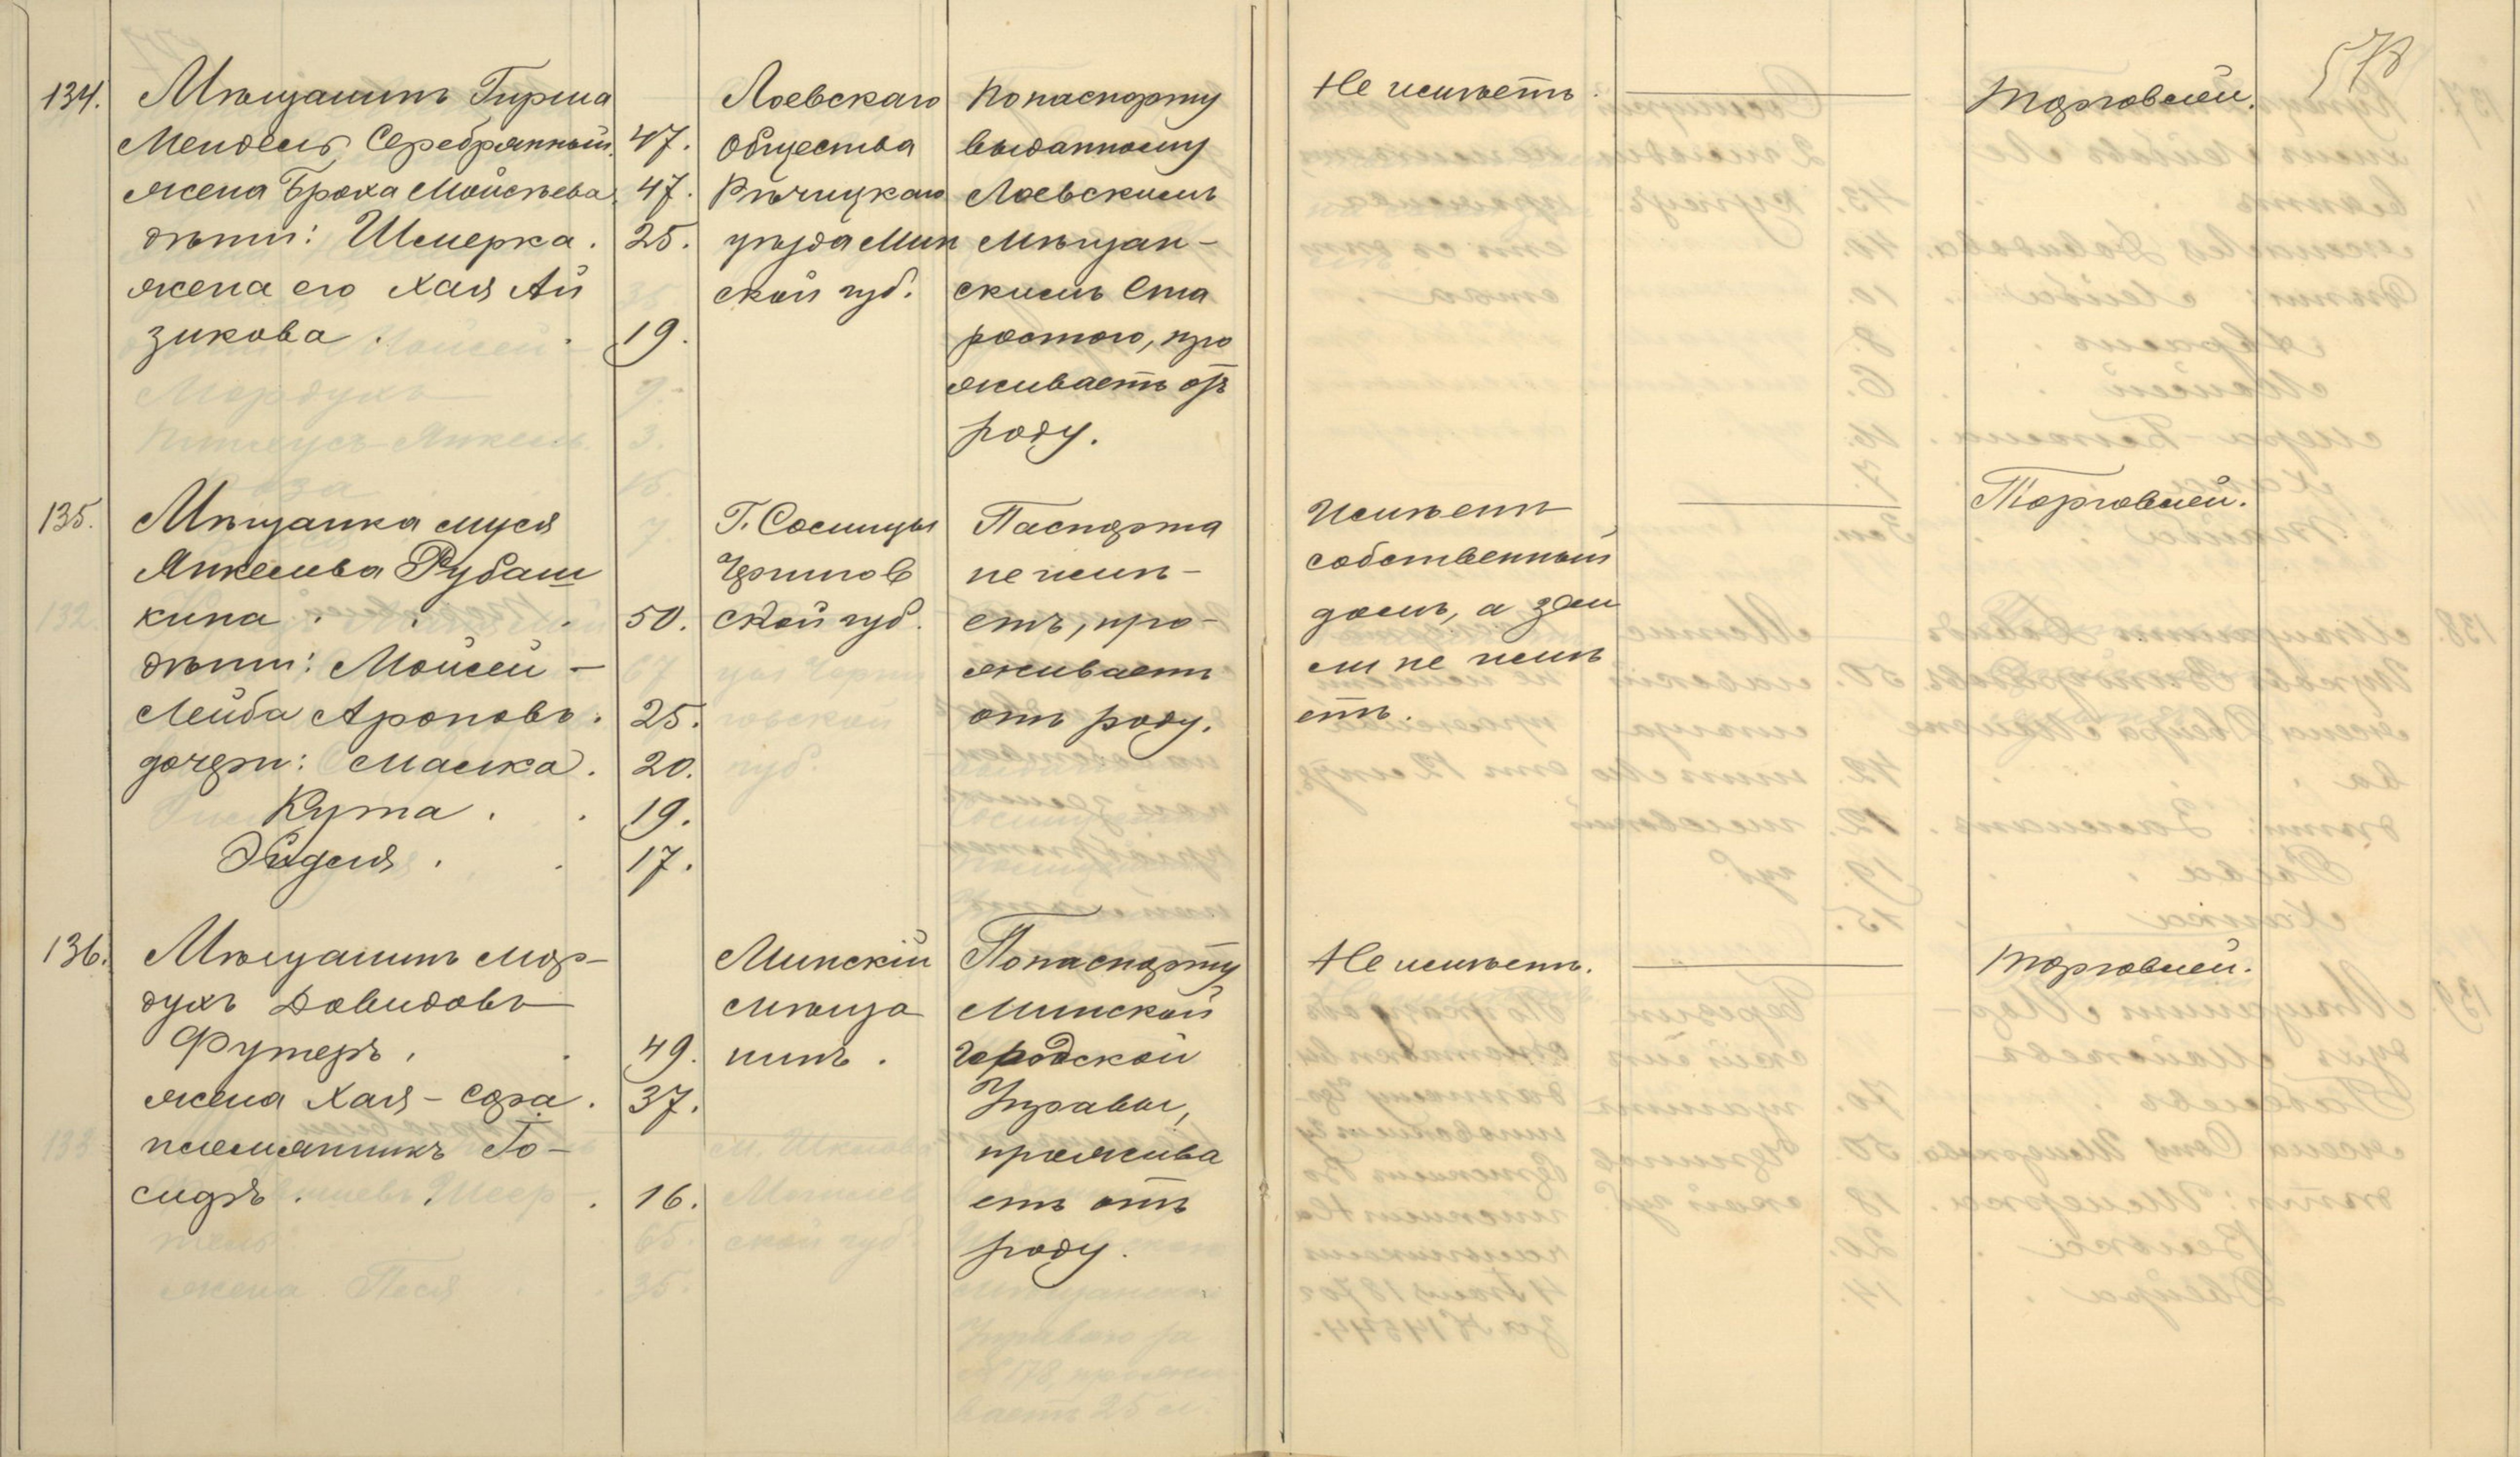 578
134.
Мѣщанинъ Гирша
Мендель Серебрянный. 47.
жена Броха Мойсѣева. 47.
дѣти: Шмерка. 25.
жена его Хая Ай
зикова . . 19.
Лоевскаго
Общества
Рѣчицкаго
уѣзда Мин
ской губ.
По паспорту
выданному
Лоевскимъ
Мѣщан-
скимъ Ста
ростою, про
живаетъ отъ
роду.
Не имѣетъ.
Торговлей.
135.
Мѣщанка Муся
Янкелева Рубаш
кина . . . 50.
дѣти: Мойсей-
Лейба Ароновъ. 25.
дочери: Малка. 20.
Кута . . 19.
Эйдля . . 17.
Г. Сосницы
Чернигов
ской губ.
Паспорта
не имѣ-
етъ, про-
живаетъ
отъ роду.
Имѣетъ
собственный
домъ, а зем
ли не имѣ
етъ.
Торговлей.
136.
Мѣщанинъ Мор-
духъ Довидовъ
Футеръ . . 49.
жена Хая-Сора. 37.
племянникъ Іо-
сидръ . . . 16.
Минскій
мѣща
нинъ.
По паспорту
Минской
Городской
Управы,
прожива
етъ отъ
роду.
Не имѣетъ.
Торговлей.